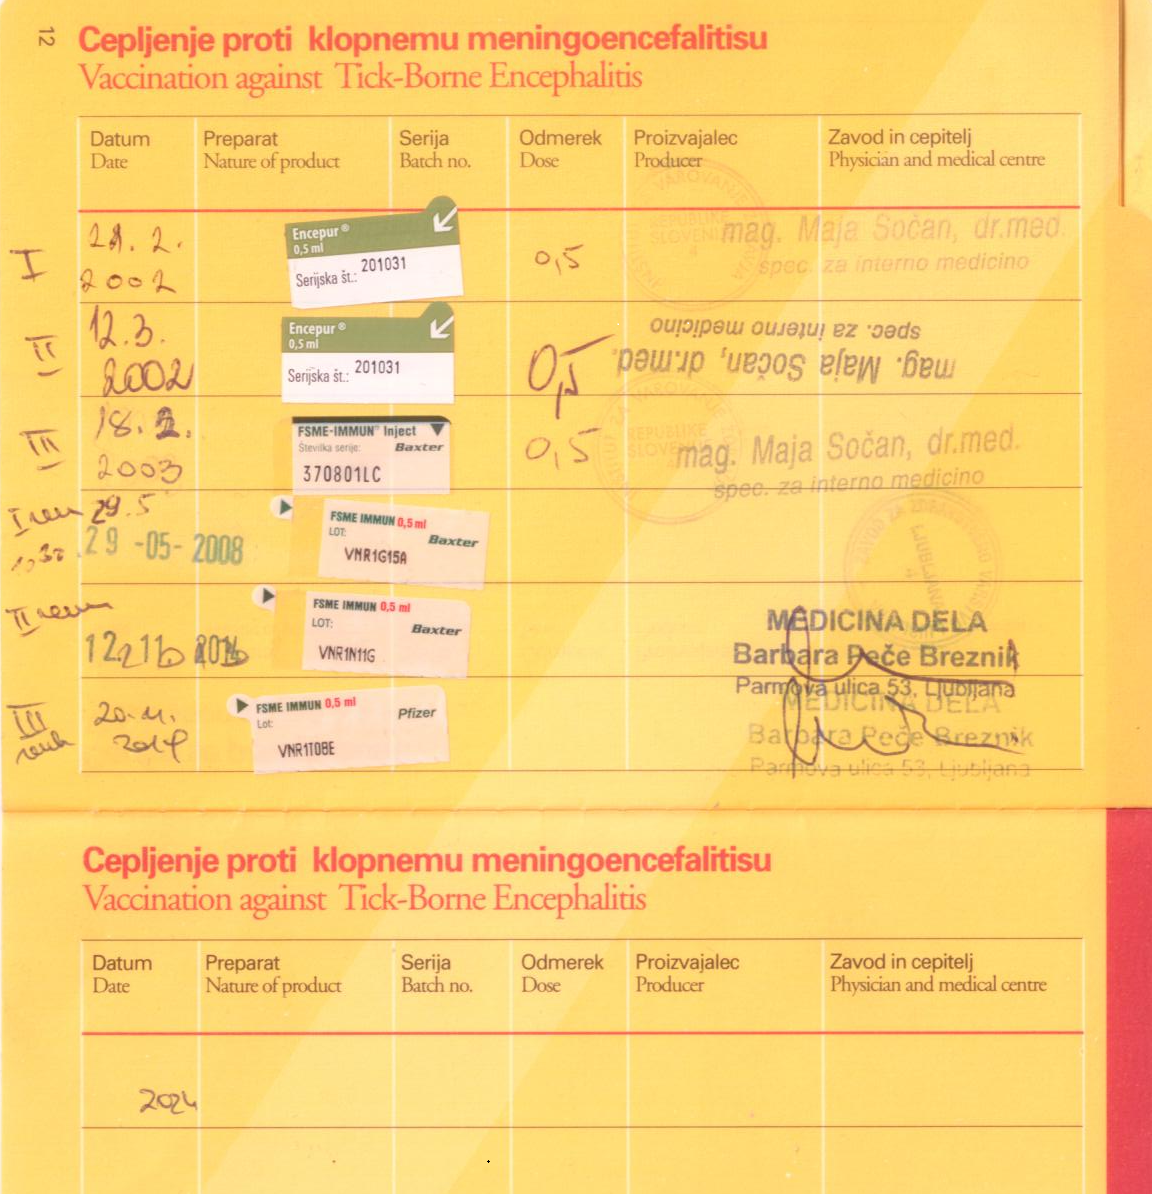 12
Cepljenje proti klopnemu meningoencefalitisu
Vaccination against Tick-Borne Encephalitis
Datum Preparat Serija Odmerek Proizvajalec Zavod in cepitelj
Date Nature of product Batch no. Dose Producer Physician and medical centre
I
2002
Encepur®
0,5 ml
Serijska št.: 201031
0,5
mag. Maja Sočan, dr.med.
spec. za interno medicino
II
12.3.
2002
Encepur®
0,5 ml
Serijska št.: 201031
0,5
mag. Maja Sočan, dr.med.
spec. za interno medicino
III
18.2.
2003
FSME-IMMUN® Inject
Številka serije: Baxter
370801LC
0,5
mag. Maja Sočan, dr.med.
spec. za interno medicino
I
29.5
29-05-2008
FSME IMMUN 0,5 ml
LOT: Baxter
VNR1G15A
II
FSME IMMUN 0,5 ml
LOT: Baxter
VNR1N11G
MEDICINA DELA
Barbara Peče Breznik
Parmova ulica 53, Ljubljana
III
FSME IMMUN 0,5 ml
Lot: Pfizer
VNR1T08E
MEDICINA DELA
Barbara Peče Breznik
Parmova ulica 53, Ljubljana
Cepljenje proti klopnemu meningoencefalitisu
Vaccination against Tick-Borne Encephalitis
Datum Preparat Serija Odmerek Proizvajalec Zavod in cepitelj
Date Nature of product Batch no. Dose Producer Physician and medical centre
2024